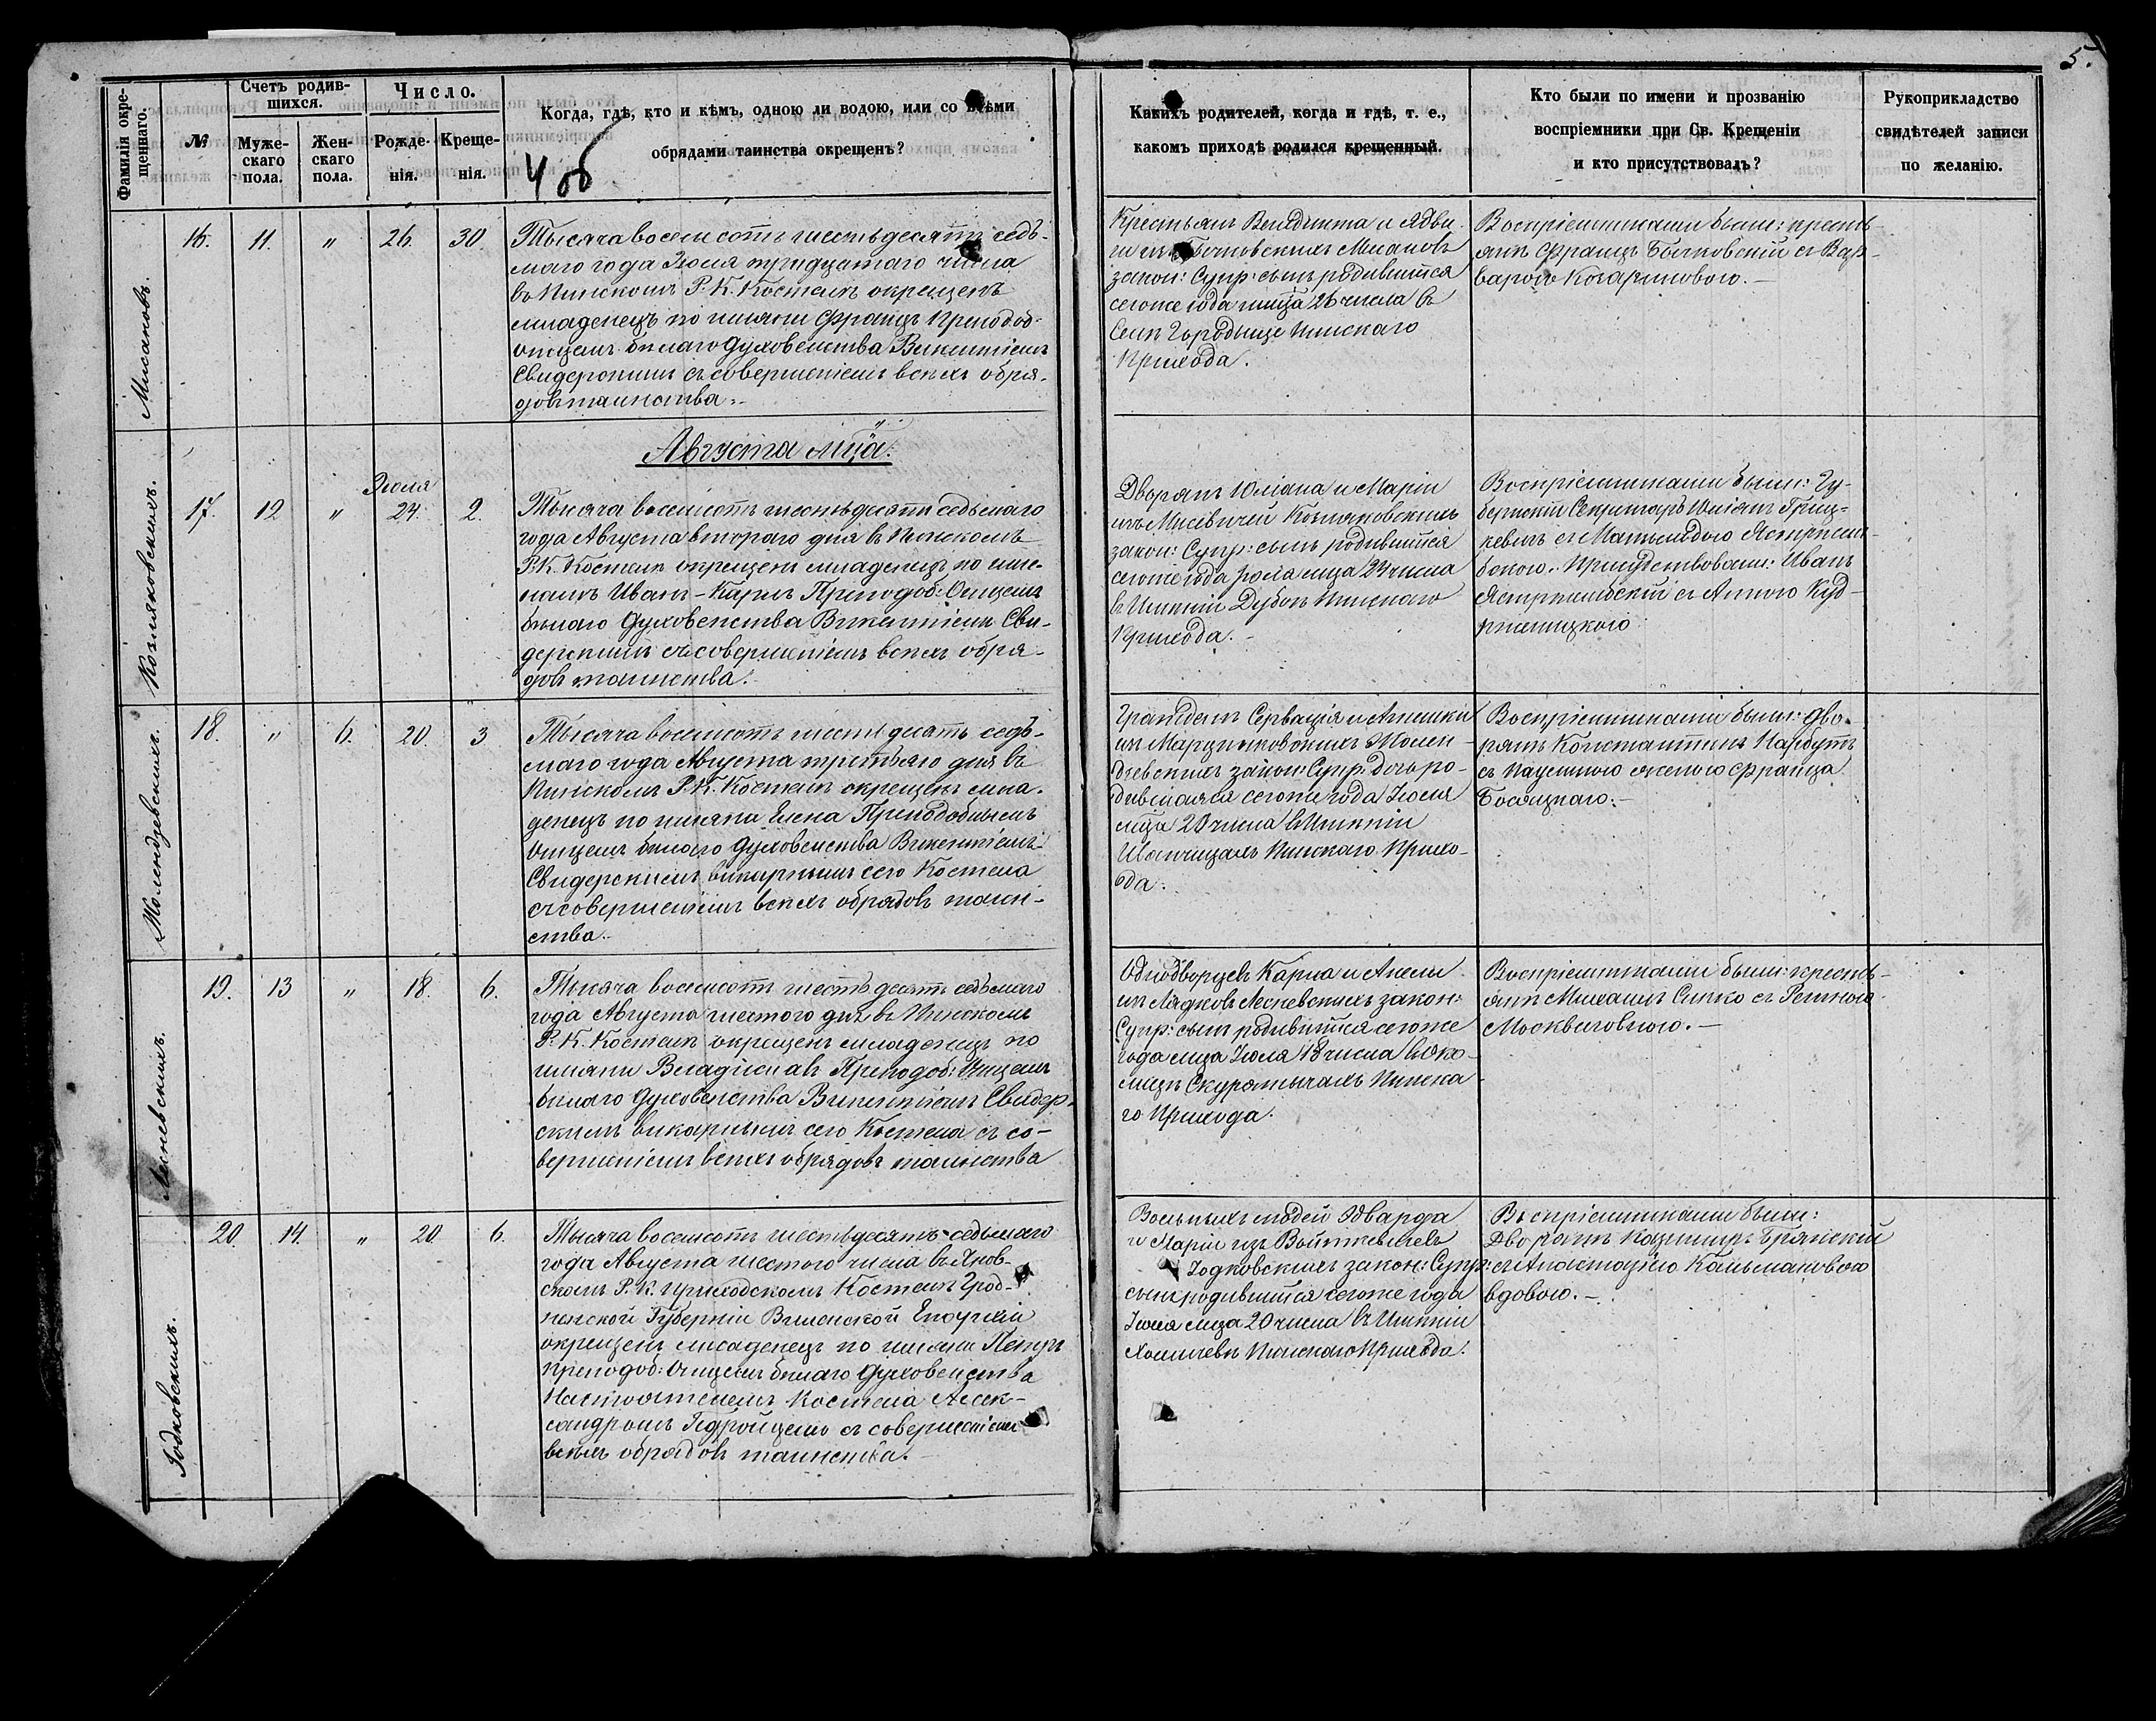 5.
Фамилія окре-
щеннаго.
№
Счетъ родив-
шихся.
Муже-
скаго
пола.
Жен-
скаго
пола.
Число.
Рожде-
нія.
Креще-
нія.
Когда, гдѣ, кто и кѣмъ, одною ли водою, или со всѣми
обрядами таинства окрещенъ?
4 об
Какихъ родителей, когда и гдѣ, т. е.,
какомъ приходѣ родился крещенный.
Кто были по имени и прозванію
воспріемники при Св. Крещеніи
и кто присутствовалъ?
Рукоприкладство
свидѣтелей записи
по желанію.
Мисановъ.
16. 11. „ 26. 30.
Тысяча восемсотъ шестьдесятъ седь-
маго года Іюля тридцатаго числа
въ Пинскомъ Р. К. Костелѣ окрещенъ
младенецъ по имяни Францъ Преподоб.
Отцемъ бѣлаго Духовенства Викентіемъ
Свидерскимъ съ совершеніемъ всѣхъ обря-
довъ таинства.
Крестьянъ Венедикта и Ядви-
ги изъ Бочковскихъ Мисановъ
закон: Супр: сынъ родившійся
сегоже года мца 26 числа въ
Селѣ Городище Пинскаго
Прихода.
Воспріемниками были: кресть-
янъ Францъ Бочковскій съ Вар-
варою Кочариковою.
Августа мца.
Козляковскихъ.
17. 12 „ Іюля
24. 2.
Тысяча восемсотъ шестьдесятъ седьмаго
года Августа втораго дня въ Пинскомъ
Р. К. Костелѣ окрещенъ младенецъ по име-
намъ Иванъ-Карлъ Преподоб: Отцемъ
бѣлаго Духовенства Викентіемъ Сви-
дерскимъ съ совершеніемъ всѣхъ обря-
довъ таинства.
Дворянъ Юліана и Маріи
изъ Мисѣвичей Козляковскихъ
закон: Супр: сынъ родившійся
сегоже года Іюля мца 24 числа
въ Имѣніи Дубоѣ Пинскаго
Прихода.
Воспріемниками были: Гу-
бернскій Секретарь Юліанъ Гриц-
кевичъ съ Матильдою Ястржем-
бскою. Присутствовали: Иванъ
Ястржембскій съ Анною Куд-
ржицкою
Жолендзевскихъ.
18. „ 6. 20. 3
Тысяча восемсотъ шестьдесятъ седь-
маго года Августа третьяго дня въ
Пинскомъ Р. К. Костелѣ окрещенъ мла-
денецъ по имяни Елена Преподобнымъ
Отцемъ бѣлаго Духовенства Викентіемъ
Свидерскимъ викарнымъ сего Костела
съ совершеніемъ всѣхъ обрядовъ таин-
ства.
Гражданъ Сервація и Агнешки
изъ Марцинковскихъ Жолен-
дзевскихъ закон: Супр: дочь ро-
дившаяся сегоже года Іюля
мца 20 числа въ Имѣніи
Иванчицахъ Пинскаго Прихо-
да.
Воспріемниками были: Дво-
рянъ Константинъ Нарбутъ
съ Паулиною женою Франца
Босяцкаго.
Лесневскихъ.
19. 13 „ 18. 6.
Тысяча восемсотъ шестьдесятъ седьмаго
года Августа шестого дня въ Пинскомъ
Р. К. Костелѣ окрещенъ младенецъ по
имяни Владиславъ Преподоб: Отцемъ
бѣлаго Духовенства Викентіемъ Свидер-
скимъ викарнымъ сего Костела съ со-
вершеніемъ всѣхъ обрядовъ таинства
Однодворцевъ Карла и Анели
изъ Лядковъ Лесневскихъ закон:
Супр: сынъ родившійся сегоже
года мца Іюля 18 числа въ Око-
лицѣ Скуратычахъ Пинска-
го Прихода.
Воспріемниками были: кресть-
янъ Михаилъ Сипко съ Региною
Москвиговною.
Годковскихъ.
20. 14. „ 20. 6.
Тысяча восемсотъ шестьдесятъ седьмаго
года Августа шестого числа въ Янов-
скомъ Р. К. Приходскомъ Костелѣ Грод-
ненской Губерніи Виленской Епархіи
окрещенъ младенецъ по имяни Петръ
Преподоб: Отцемъ бѣлаго Духовенства
Настоятелемъ Костела Алек-
сандромъ Гедройцемъ съ совершеніемъ
всѣхъ обрядовъ таинства.
Вольныхъ людей Эдварда
и Маріи изъ Войткевичевъ
Годковскихъ закон: Супр:
сынъ родившійся сегоже года
Іюля мца 20 числа въ Имѣніи
Хомичевѣ Пинскаго Прихода.
Воспріемниками были:
Дворянъ Казиміръ Брянскій
съ Анастазіею Кальмановою
вдовою.